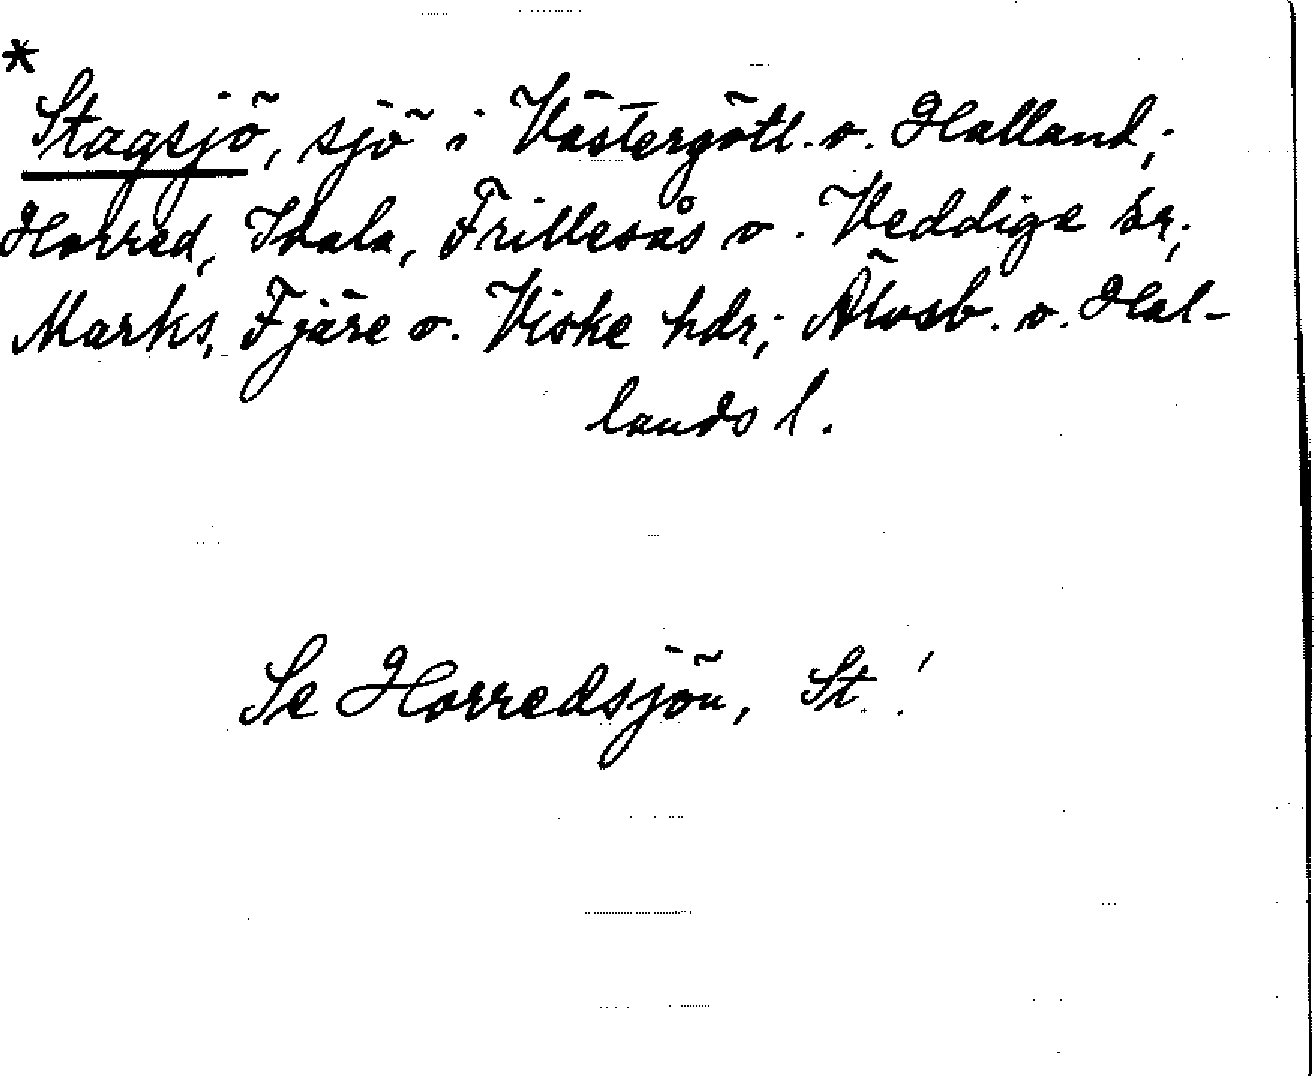 *
Stagsjö, sjö i Västergötl. o. Halland;
Horred, Idala, Frillesås o. Veddige sr;
Marks, Fjäre o. Viske hdr; Älvsb. o. Hal-
lands l.
Se Horredsjön, St !